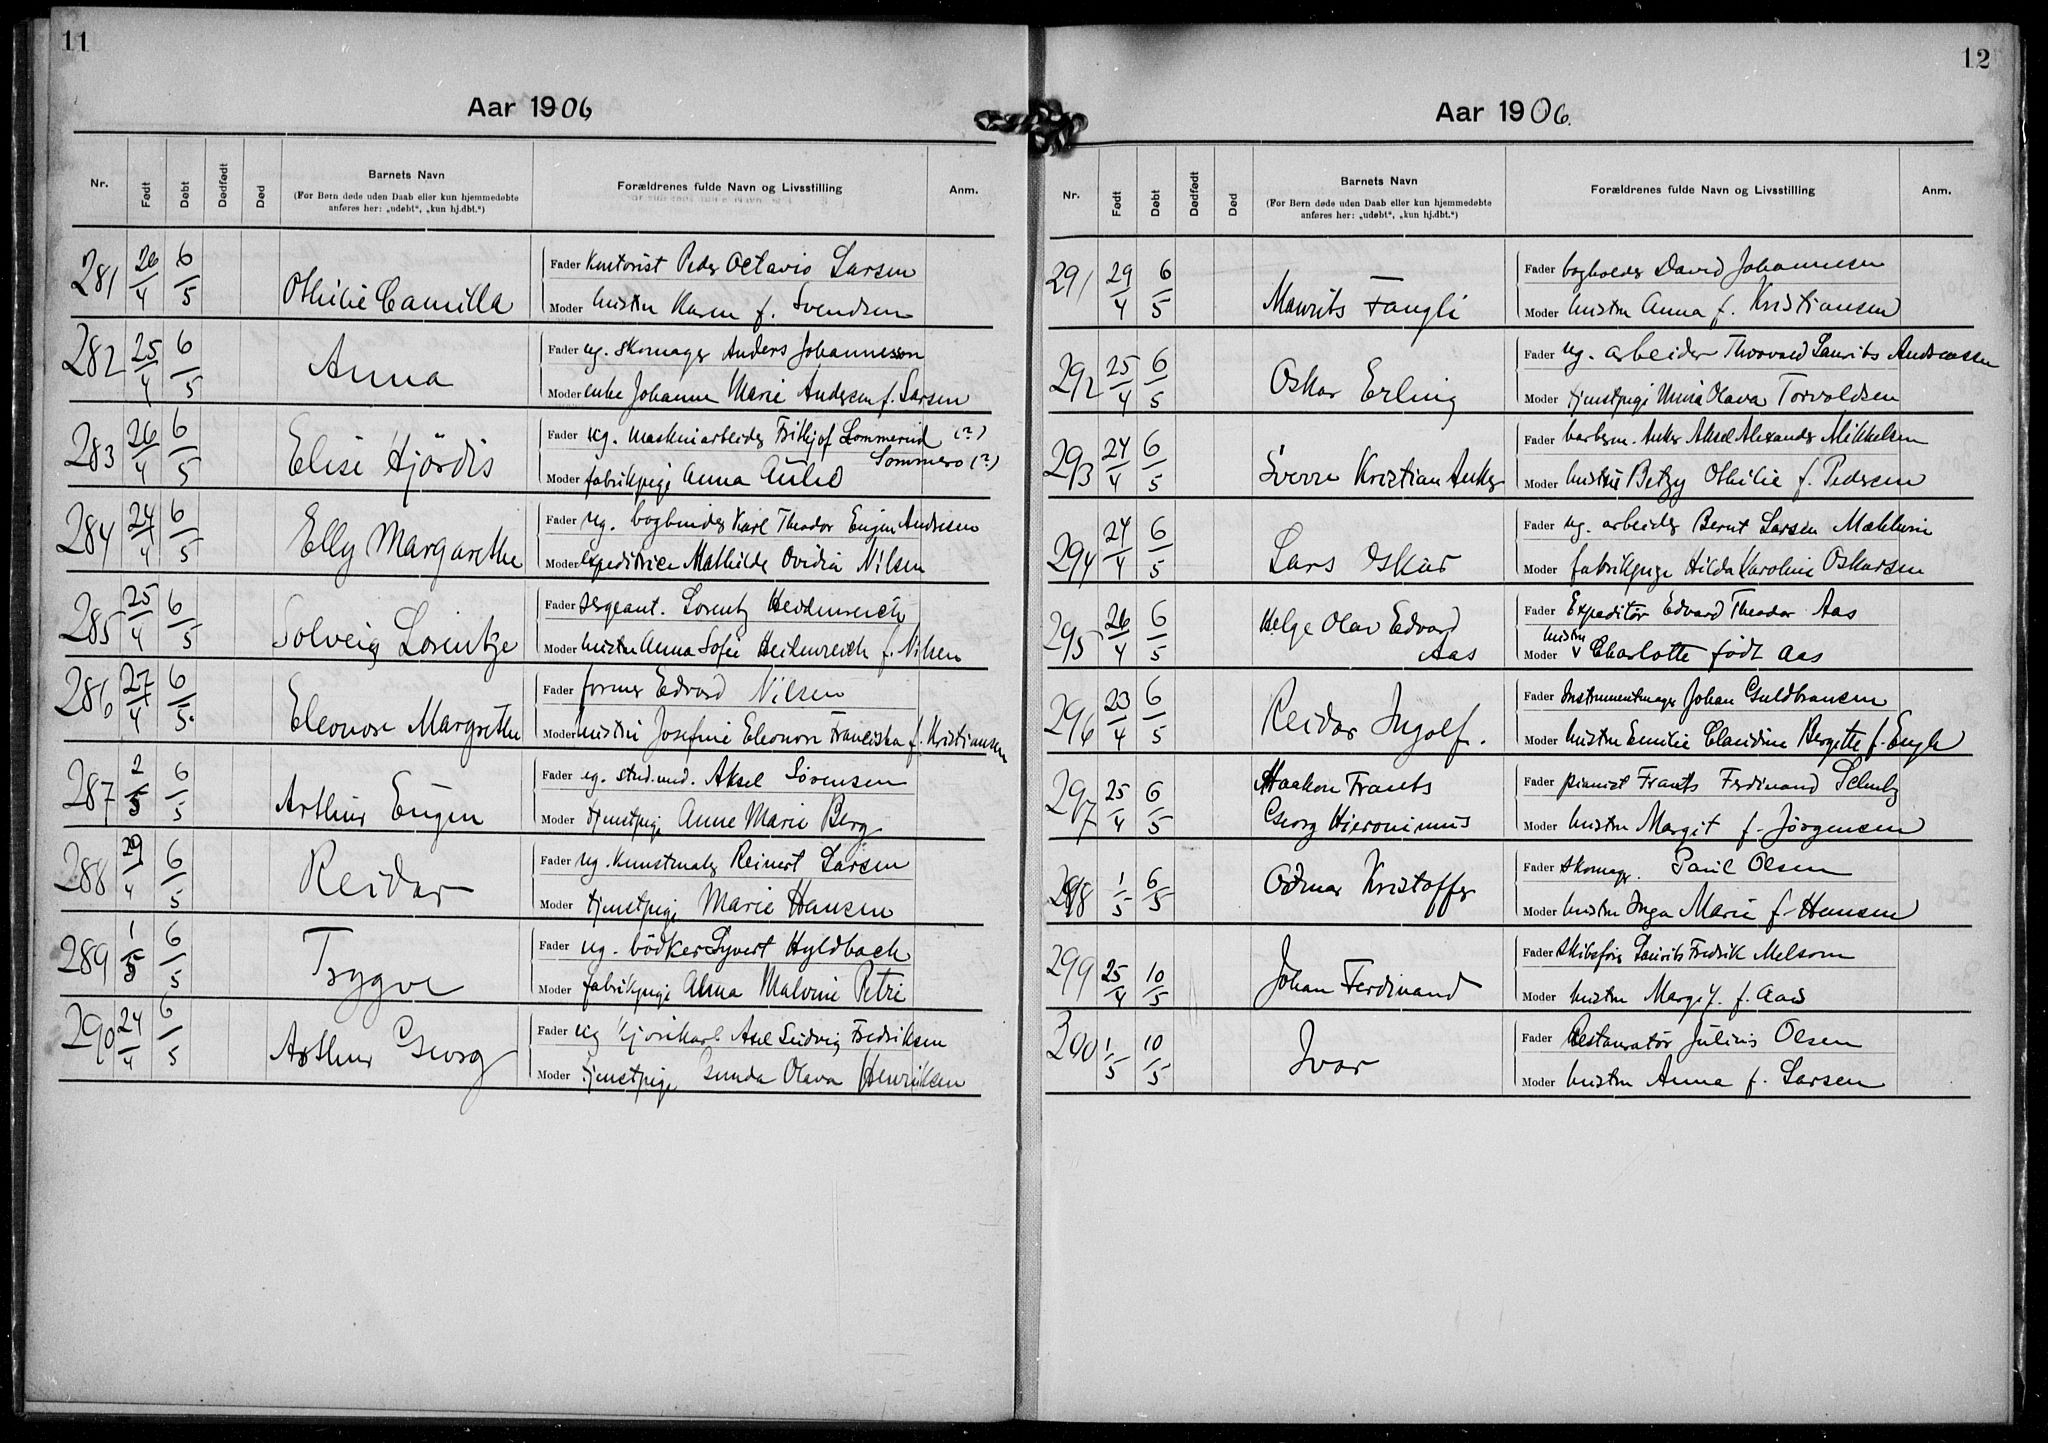 11
Aar 1906
Nr. Født Døbt Dødfødt Død Barnets Navn Forældrenes fulde Navn og Livsstilling Anm.
(For Børn døde uden Daab eller kun hjemmedøbte
anføres her: „udøbt“, „kun hj.dbt.“)
281 26/4 6/5 Othilie Camilla
Fader Kontorist Peder Octavio Larsen
Moder hustru Karen f. Svendsen
282 25/4 6/5 Anna
Fader ug. skomager Anders Johannesson
Moder enke Johanne Marie Andersen f. Larsen
283 26/4 6/5 Elise Hjördis
Fader ug. maskinarbeider Frithjof Lommerud (?)
Sommero (?)
Moder fabrikpige Anna Aulid
284 24/4 6/5 Elly Margarethe
Fader ug. bogbinder Karl Theodor Eugen Andresen
Moder expeditrice Mathilde Ovidia Nilsen
285 25/4 6/5 Solveig Lorentze
Fader sergeant. Lorentz Heidenreich
Moder hustru Anna Sofie Heidenreich f. Nilsen
286 27/4 6/5 Eleonore Margrethe
Fader former Edvard Nilsen
Moder hustru Josefine Eleonore Franciska f. Kristiansen
287 2/5 6/5 Arthur Eugen
Fader ug. stud. med. Aksel Sørensen
Moder tjenstpige Anne Marie Berg
288 29/4 6/5 Reidar
Fader ug. Kunstmaler Reinert Larsen
Moder tjenstpige Marie Hansen
289 1/5 6/5 Trygve
Fader ug. bödker Syvert Hyldbach
Moder fabrikpige Alma Malvine Petri
290 24/4 6/5 Arthur Georg
Fader ug kjørekarl Axel Ludvig Fredriksen
Moder tjenstpige Gunda Olava Henriksen
12
Aar 1906.
Nr. Født Døbt Dødfødt Død Barnets Navn Forældrenes fulde Navn og Livsstilling Anm.
(For Børn døde uden Daab eller kun hjemmedøbte
anføres her: „udøbt“, „kun hj.dbt.“)
291 29/4 6/5 Maurits Fangli
Fader bogholder David Johannesen
Moder hustru Anna f. Kristiansen
292 25/4 6/5 Oskar Erling
Fader ug. arbeider Thorvald Laurits Andreassen
Moder tjenstpige Olava Torvaldsen
293 24/4 6/5 Sverre Kristian Anker
Fader barberm. Anker Aksel Alexander Mikkelsen
Moder hustru Betzy Othilie f. Pedersen
294 24/4 6/5 Lars Oskar
Fader ug. arbeider Bernt Larsen
Moder fabrikpige Hilda Karoline Oskarsen
295 26/4 6/5 Helge Olav Edvard
Aas
Fader Expeditør Edvard Theodor Aas
hustru
Moder v Charlotte født Aas
296 23/4 6/5 Reidar Ingolf.
Fader Instrumentmager Johan Guldbransen
Moder hustru Emilie Claudine Bergitte f. Engh
297 25/4 6/5 Haakon Frants
Georg Hieronimus
Fader pianist Frants Ferdinand Schultz
Moder hustru Margit f. Jörgensen
298 1/5 6/5 Oddmar Kristoffer
Fader skomager. Paul Olsen
Moder hustru Inga Marie f. Hansen
299 25/4 10/5 Johan Ferdinand
Fader skibsfører Laurits Fredrik Melsom
Moder hustru Margit. f. Aas
300 1/5 10/5 Ivar
Fader Restauratør Julius Olsen
Moder hustru Anna f. Larsen